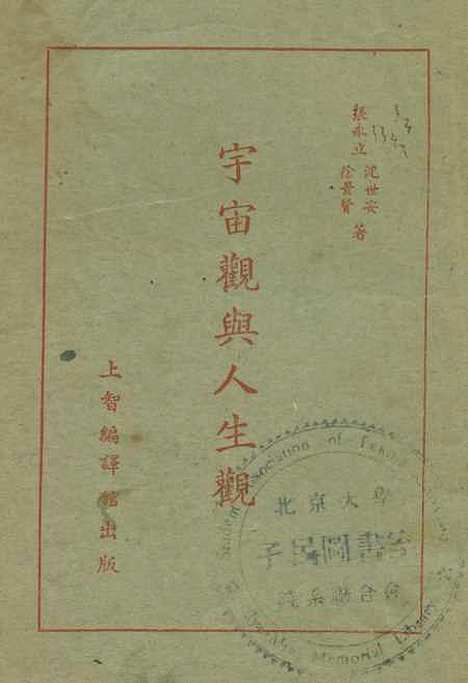 張永立
沈世安
徐景賢
著
宇宙觀與人生觀
上智編譯館出版
Association of
北京大學
子民圖書
Memorial Library